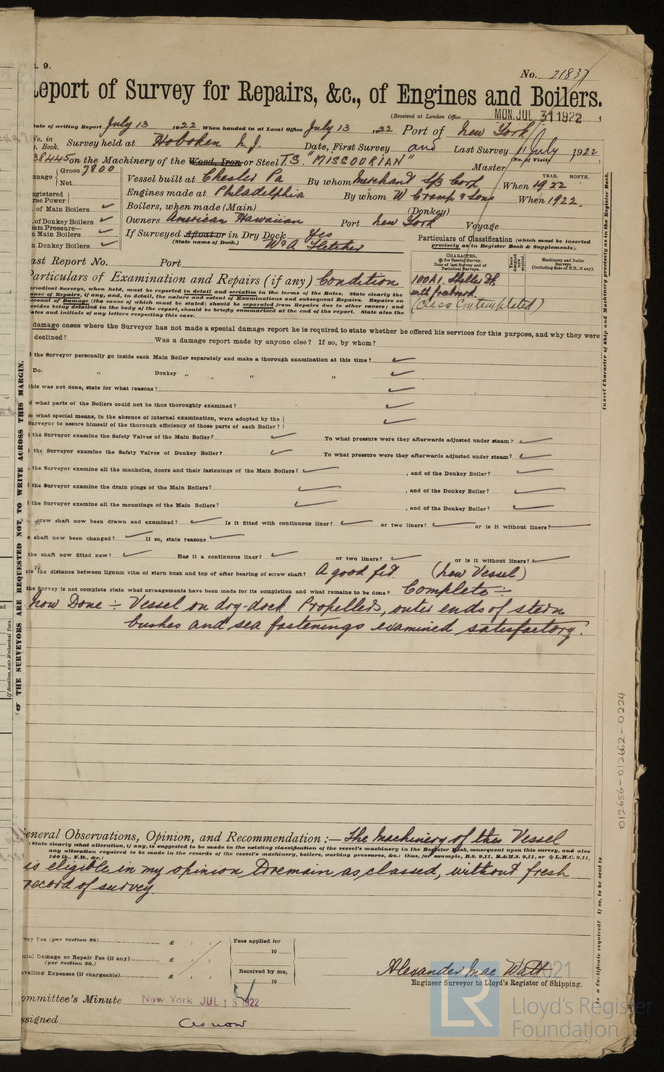 . 9.
No. 21837
Report of Survey for Repairs, &c., of Engines and Boilers.
(Received at London Office MON. JUL 31 1922
Date of writing Report July 13 1922 When handed in at Local Office July 13 1922 Port of New York
No. in Reg. Book. Survey held at Hoboken N.J. Date, First Survey and Last Survey 11 July 1922
(No. of Visits)
38445 on the Machinery of the Wood, Iron or Steel TS "MISSOURIAN" Master
Gross 7800
Net
Vessel built at Chester Pa By whom Merchant S/B Corp When 1922
YEAR. MONTH.
Engines made at Philadelphia By whom W Cramp & Sons When 1922
Boilers, when made (Main) (Donkey)
Owners American Hawaiian Port New York Voyage
If Surveyed Afloat or in Dry Dock Yes
(State name of Dock.) W & A Fletcher
of Main Boilers
of Donkey Boilers
am Pressure—
Main Boilers
Donkey Boilers
Particulars of Classification (which must be inserted precisely as in Register Book & Supplements).
Last Report No. Port
Particulars of Examination and Repairs (if any) Condition
100A1. Shelter Dk
with freeboard.
(Class Contemplated)
damage cases where the Surveyor has not made a special damage report he is required to state whether he offered his services for this purpose, and why they were
declined? Was a damage report made by anyone else? If so, by whom?
the Surveyor personally go inside each Main Boiler separately and make a thorough examination at this time?
Do. " Donkey " " "
this was not done, state for what reasons?
what parts of the Boilers could not be thus thoroughly examined?
what special means, in the absence of internal examination, were adopted by the
Surveyor to assure himself of the thorough efficiency of those parts of each Boiler?
the Surveyor examine the Safety Valves of the Main Boiler? To what pressure were they afterwards adjusted under steam?
the Surveyor examine the Safety Valves of Donkey Boiler? To what pressure were they afterwards adjusted under steam?
the Surveyor examine all the manholes, doors and their fastenings of the Main Boilers? , and of the Donkey Boiler?
the Surveyor examine the drain plugs of the Main Boilers? , and of the Donkey Boiler?
the Surveyor examine all the mountings of the Main Boilers? , and of the Donkey Boiler?
screw shaft now been drawn and examined? Is it fitted with continuous liner? or two liners? or is it without liners?
shaft now been changed? If so, state reasons
the shaft now fitted new? Has it a continuous liner? or two liners? or is it without liners?
the distance between lignum vitæ of stern bush and top of after bearing of screw shaft? A good fit (New Vessel)
the Survey is not complete state what arrangements have been made for its completion and what remains to be done? Complete ÷
Now Done ÷ Vessel on dry-dock Propeller, outer ends of stern
bushes and sea fastenings examined satisfactory.
General Observations, Opinion, and Recommendation :— The Machinery of this Vessel
(State clearly what alteration, if any, is suggested to be made in the existing classification of the vessel's machinery in the Register Book, consequent upon this survey, and also
any alteration required to be made in the records of the vessel's machinery, boilers, working pressures, &c.: thus, for example, B.S. 9,11, B.&M.S. 9,11, or L.M.C. 9,11,
140 lb., F.D., &c.)
is eligible in my opinion to remain as classed, without fresh
record of survey
Survey Fee (per Section 28) £
Special Damage or Repair Fee (if any) £
(per Section 28.)
Travelling Expenses (if chargeable) £
Fees applied for
19
Received by me,
19
Alexander Mac Watt
Engineer Surveyor to Lloyd's Register of Shipping.
Committee's Minute New York JUL 18 1922
Assigned As now
THE SURVEYORS ARE REQUESTED NOT TO WRITE ACROSS THIS MARGIN.
Insert Character of Ship and Machinery precisely as in the Register Book.
012656-012662-0224
2021
LR
Lloyd's Register
Foundation